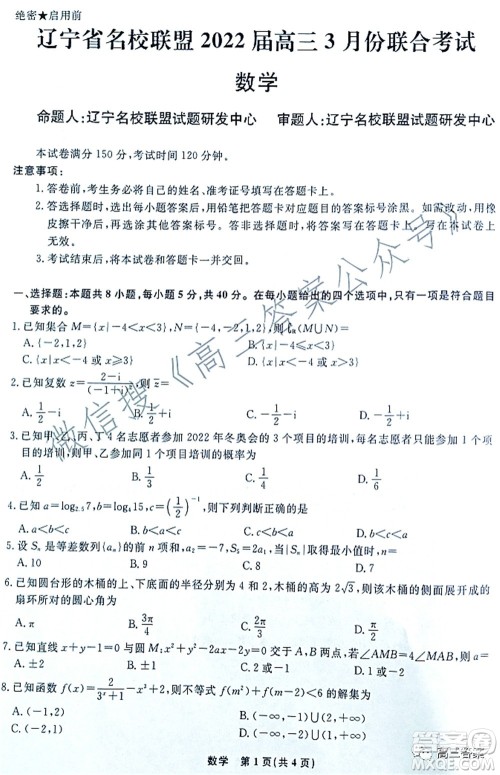 绝密★启用前
辽宁省名校联盟 2022 届高三 3 月份联合考试
数学
命题人:辽宁名校联盟试题研发中心 审题人:辽宁名校联盟试题研发中心
本试卷满分 150 分,考试时间 120 分钟。
注意事项:
1. 答卷前,考生务必将自己的姓名、准考证号填写在答题卡上。
2. 答选择题时,选出每小题答案后,用铅笔把答题卡对应题目的答案标号涂黑。如需改动,用橡
皮擦干净后,再选涂其他答案标号。答非选择题时,将答案写在答题卡上。写在本试卷上
无效。
3. 考试结束后,将本试卷和答题卡一并交回。
一、选择题:本题共 8 小题,每小题 5 分,共 40 分。在每小题给出的四个选项中,只有一项是符合题目
要求的。
1. 已知集合 M={x|-4<x<3}, (M∪N)=
A. (-4,2) B. (-2,3)
C. {x|x<-4 或 x≥3} D. {x|x≤-4 或 x≥3}
2. 已知复数 z=\frac{2-i}{(-1+i)^2},则 \bar{z}=
A. \frac{1}{2}-i B. \frac{1}{2}+i
3. 已知甲、乙、丙、丁 4 名志愿者参加 2022 年冬奥会的 3 个项目的培训,每名志愿者只能参加 1 个项
目的培训,则甲、乙参加同一项目培训的概率为
A. \frac{1}{2} B. \frac{1}{3} C. \frac{1}{4} D. \frac{1}{6}
4. 已知 b=log₄15,c=(\frac{1}{2})^{-1},则下列判断正确的是
A. a<b<c B. b<c<a C. b<a<c D. c<b<a
5. 设 Sₙ 是等差数列{aₙ}的前 n 项和,若 a₂=-2,S₅=2a₁,当|Sₙ|取得最小值时,n=
A. 10 B. 9
6. 已知圆台形的木桶的上、下底面的半径分别为 4 和 2,高为 2√3,则该木桶的侧面展开成的
扇环所对的圆心角为
A. π
7. 已知直线 x+y-1=0 与圆 M:x²+y²-2x+2ay-2=0 交于 A,B 两点,若∠AMB=4∠MAB,则 a=
A. ±2 D. 1 或-1
8. 已知函数 f(x)=\frac{2}{3^x+1}-x³+2,则不等式 f(m²)+f(m-2)<6 的解集为
A. (-1,2) B. (-∞,-1)∪(2,+∞)
C. (-2,1) D. (-∞,-2)∪(1,+∞)
数学 第 1 页(共 4 页)
微信搜《高三答案公众号》
高三答案